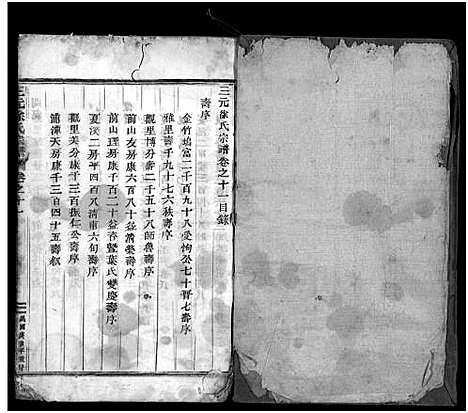 三元徐氏宗譜卷之十一目錄
壽序
金竹塢富二千百九十八愛怐公七十晉七壽序
雅里壽千九十七六秩壽序
觀里博分壽二千五十八師魯壽序
前山友房康六百八十益清婺壽序
前山理房康千百二十益春暨葉氏雙慶壽序
夏溪二房平四百八清甫六旬壽序
觀里美分康千三百振仁公壽序
蒲潭天房康千三百四十五壽叙
三元徐氏宗譜
卷之十一